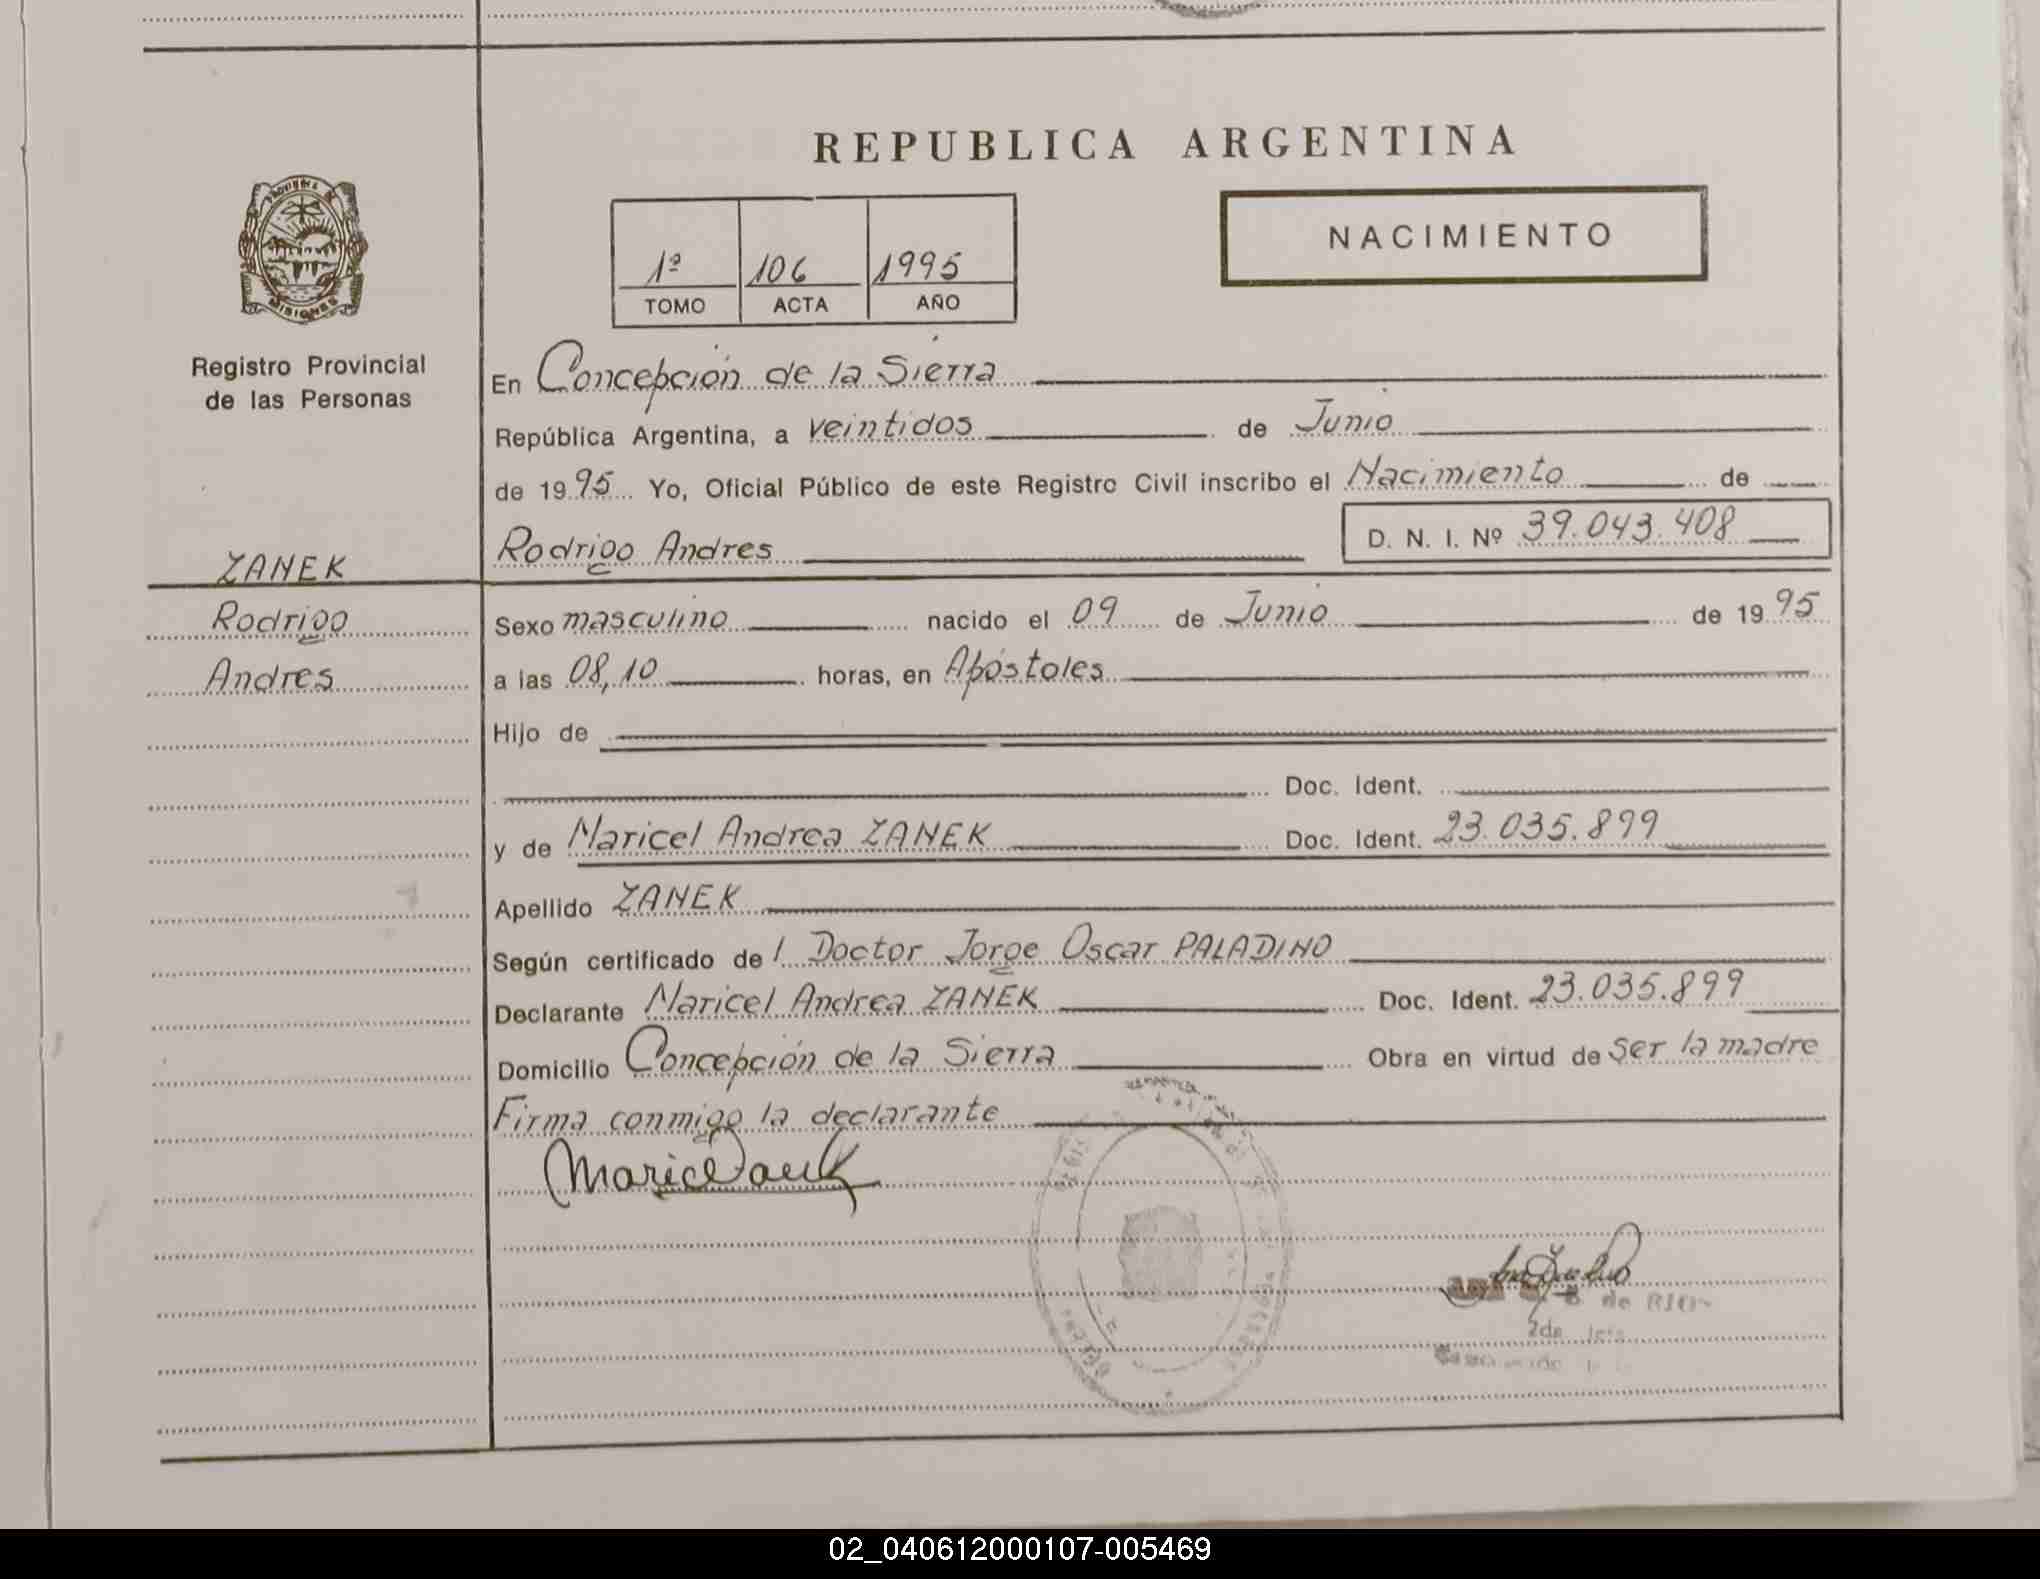 REPUBLICA ARGENTINA
1º 106 1995
TOMO ACTA AÑO
NACIMIENTO
MISIONES
Registro Provincial
de las Personas
ZANEK
Rodrigo
Andres
En Concepción de la Sierra
República Argentina, a veintidos de Junio
de 1995 Yo, Oficial Público de este Registro Civil inscribo el Nacimiento de
Rodrigo Andres D. N. I. Nº 39.043.408
Sexo masculino nacido el 09 de Junio de 1995
a las 08,10 horas, en Apóstoles
Hijo de
Doc. Ident.
y de Maricel Andrea ZANEK Doc. Ident. 23.035.899
Apellido ZANEK
Según certificado de l Doctor Jorge Oscar PALADINO
Declarante Maricel Andrea ZANEK Doc. Ident. 23.035.899
Domicilio Concepción de la Sierra Obra en virtud de ser la madre
Firma conmigo la declarante
de RIO
02_040612000107-005469